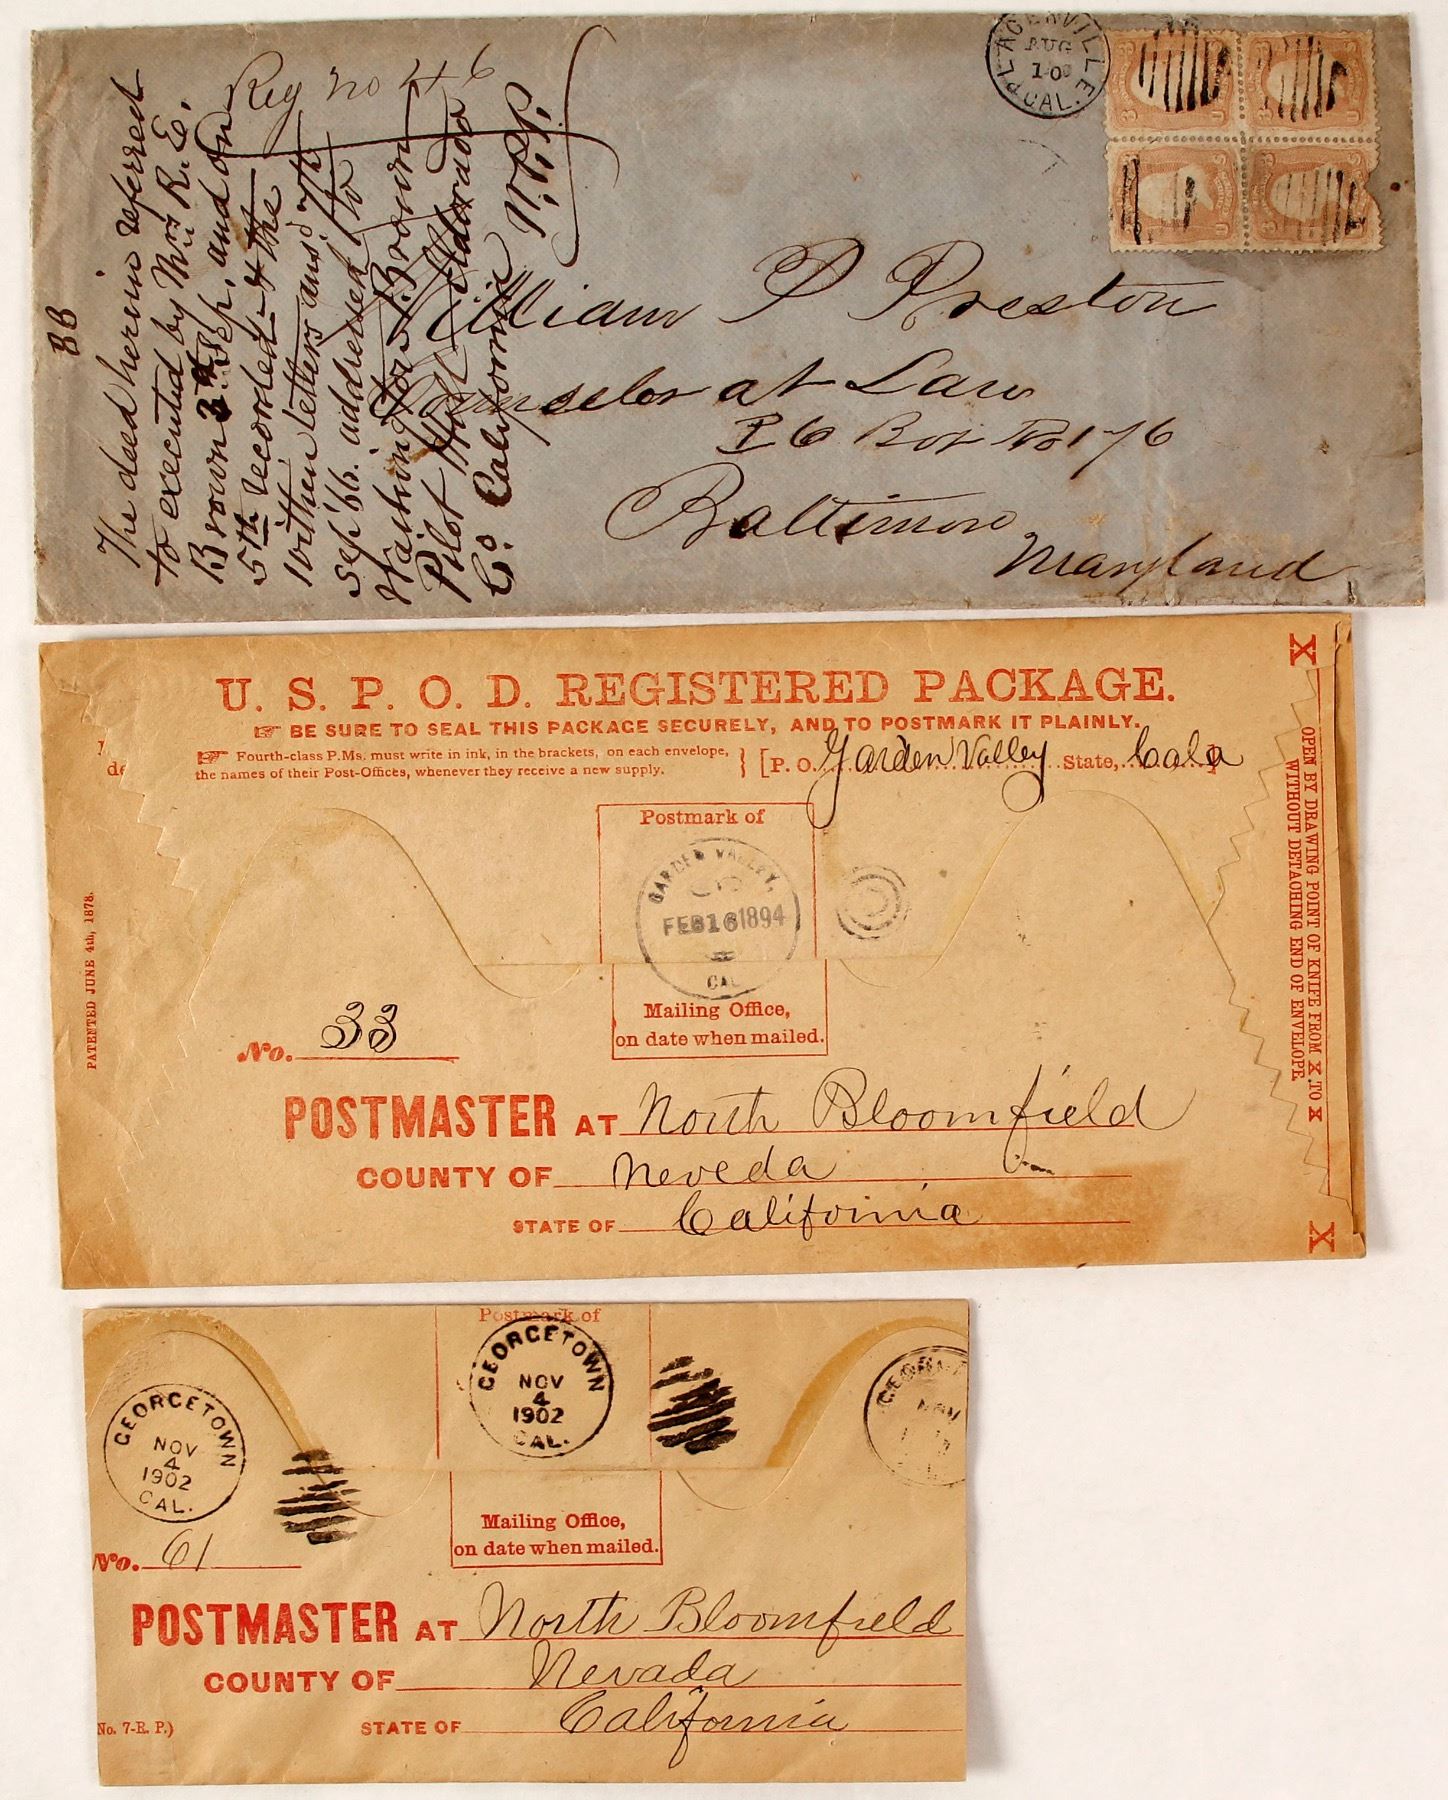 PLACERVILLE
AUG
10
CAL.
Reg no 46
BB
The deed herein referred
to executed by Mrs R. E.
Brown 3d Sep, and on
5th recorded - & the
within letters ansd 7th
Sep '66. addressed to
Washington J. Brown
Pilot Hill Eldorado
Co. California W.P.P.
William P Preston
Counselor at Law
P O Box No 176
Baltimore
Maryland
U. S. P. O. D. REGISTERED PACKAGE.
BE SURE TO SEAL THIS PACKAGE SECURELY, AND TO POSTMARK IT PLAINLY.
Fourth-class P.Ms. must write in ink, in the brackets, on each envelope,
the names of their Post-Offices, whenever they receive a new supply.
[P. O. Garden Valley State, Cala ]
Postmark of
GARDEN VALLEY,
FEB 16 1894
CAL
Mailing Office,
on date when mailed.
No. 33
POSTMASTER AT North Bloomfield
COUNTY OF Neveda
STATE OF California
PATENTED JUNE 4th, 1878.
X
OPEN BY DRAWING POINT OF KNIFE FROM X TO X
WITHOUT DETACHING END OF ENVELOPE.
X
Postmark of
GEORGETOWN
NOV
4
1902
CAL.
GEORGETOWN
NOV
4
1902
CAL.
NOV
Mailing Office,
on date when mailed.
No. 61
POSTMASTER AT North Bloomfield
COUNTY OF Nevada
STATE OF California
No. 7-R. P.)